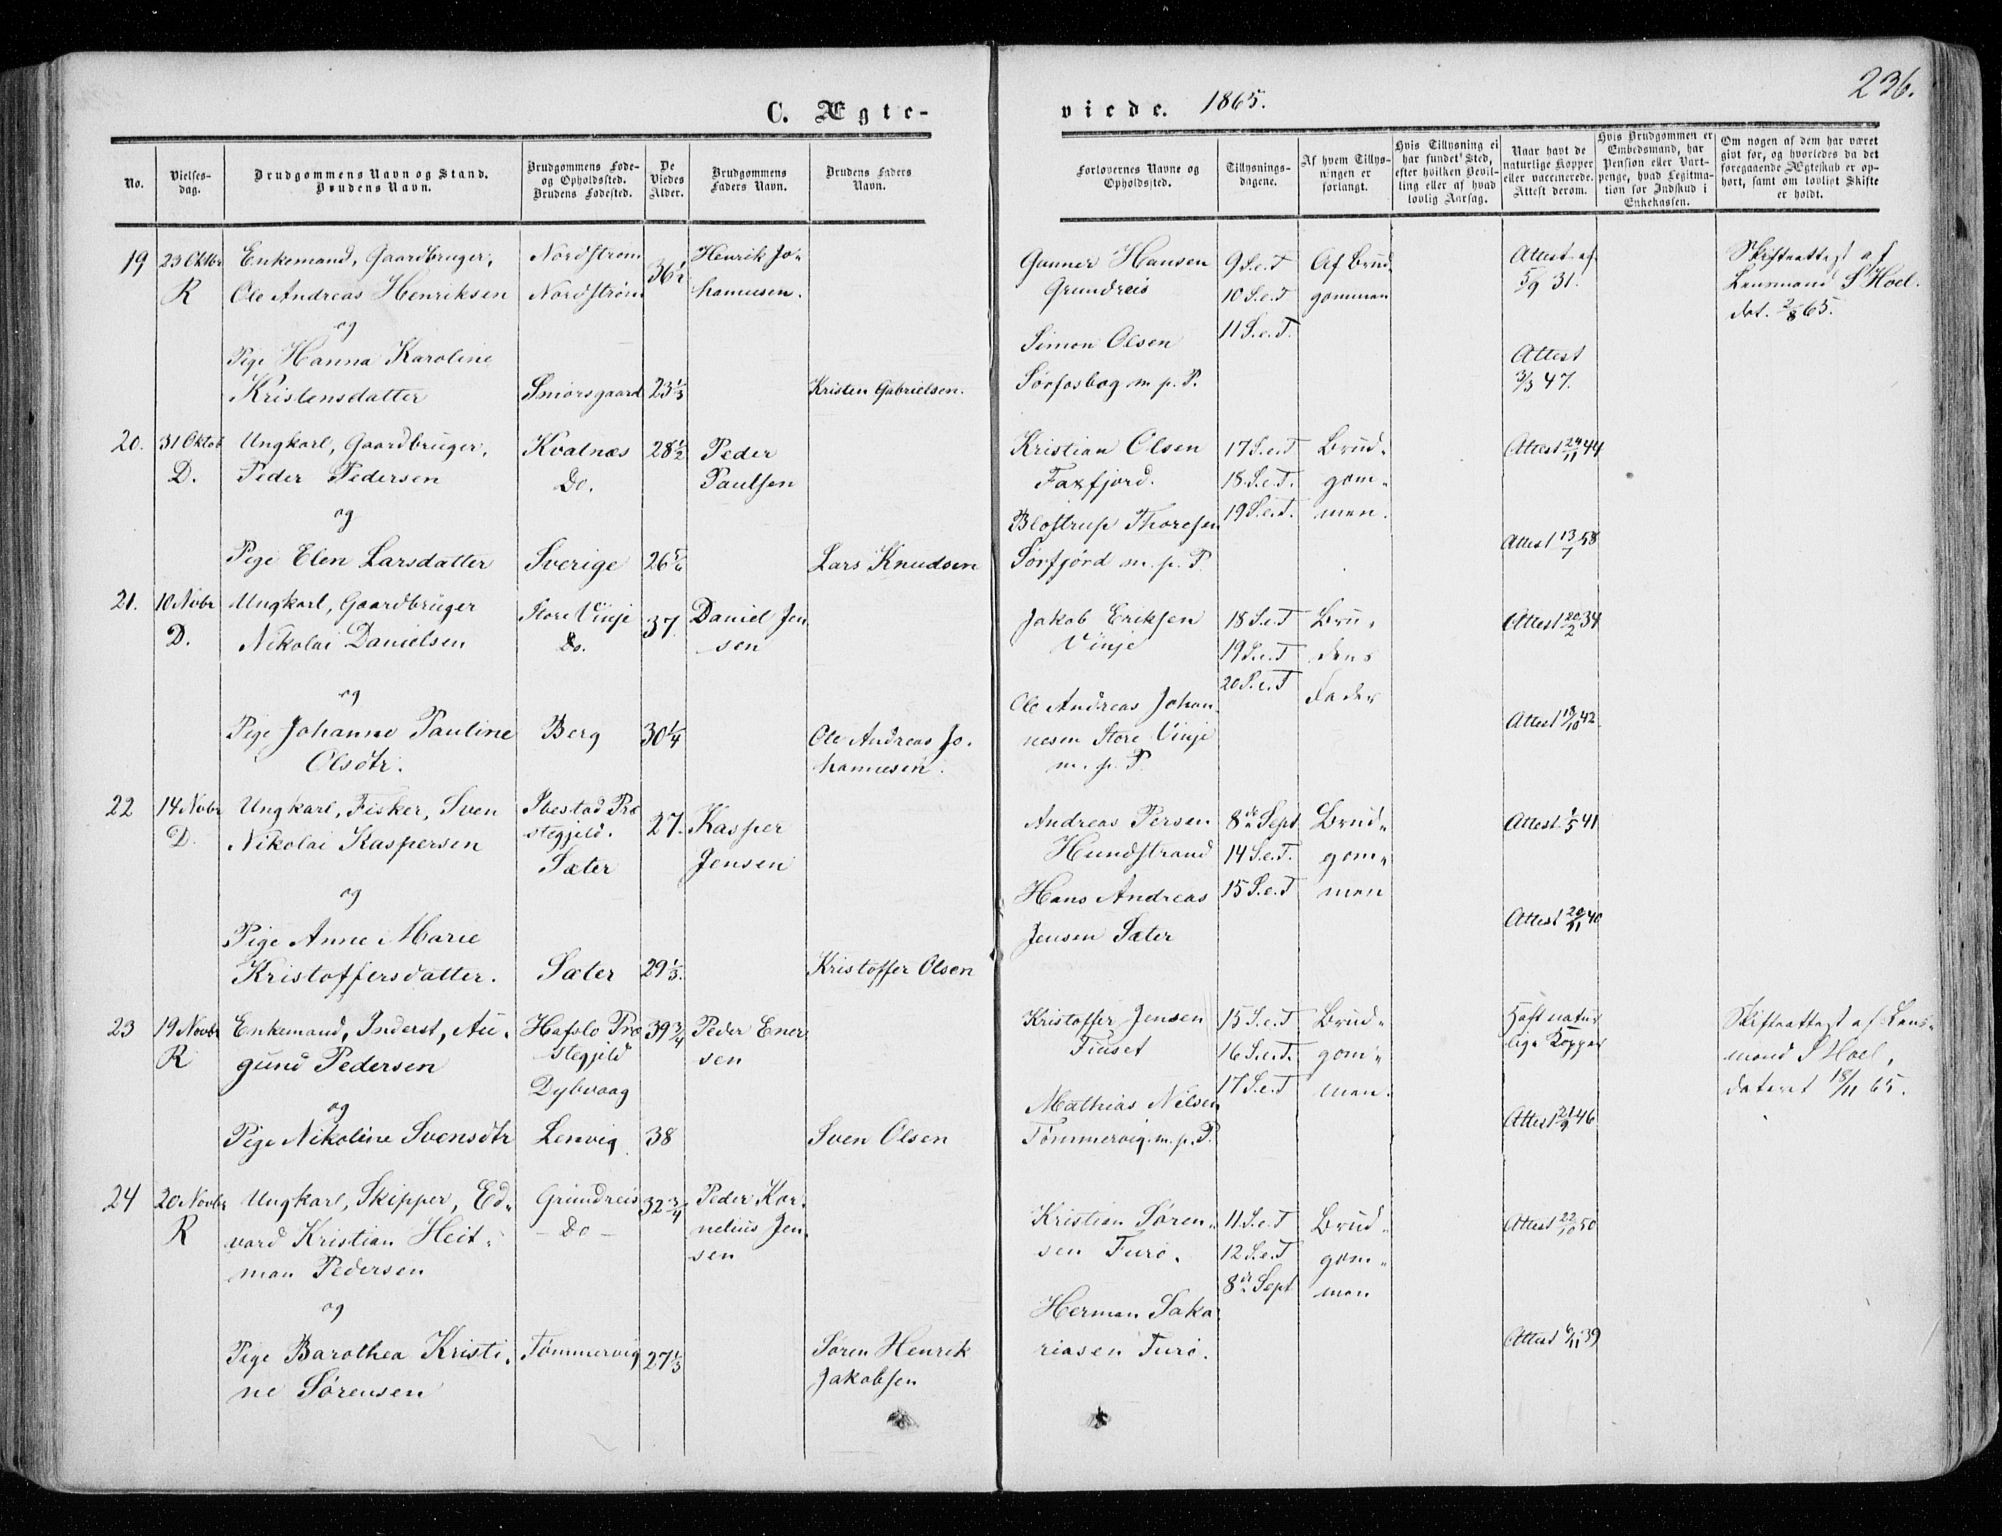 236.
C. Ægteviede. 1865.
No.
Vielsesdag.
Brudgommens Navn og Stand. Brudens Navn.
Brudgommens Føde- og Opholdssted. Brudens Fødested.
De Viedes Alder.
Brudgommens Faders Navn.
Brudens Faders Navn.
Forlovernes Navne og Opholdssted.
Tillysningsdagene.
Af hvem Tillysningen er forlangt.
Hvis Tillysning ei har fundet Sted, efter hvilken Bevilling eller af hvad lovlig Aarsag.
Naar havt de naturlige Kopper eller vaccinerede. Attest derom.
Hvis Brudgommen er Embedsmand, har Pension eller Vartpenge, hvad Legitimation for Indskud i Enkekassen.
Om nogen af dem har været givt før, og hvorledes da det foregaaende Ægteskab er ophørt, samt om lovligt Skifte er holdt.
19 23 Oktbr R
Enkemand, Gaardbruger,
Ole Andreas Henriksen
og
Pige Hanna Karoline
Kristensdatter
Nordstrøm
Nordstrøm
Smørsgaard
36½
23⅓
Henrik Johannesen.
Kristen Gabrielsen.
Gunner Hansen
Grundreis
Simon Olsen
Sørfosbog m. p. P.
9 S. e. T
10 S. e. T
11 S. e. T.
Af Brudgommen
Attest af
5/9 31.
Attest
3/3 47.
Skifteattest af
Lensmand S Hoel.
dat. 2/8 65.
20. 31 Oktob D.
Ungkarl, Gaardbruger,
Peder Pedersen
og
Pige Elen Larsdatter
Kvalnæs
Do.
Sverige
28½
26 5/6
Peder
Paulsen
Lars Knudsen
Kristian Olsen
Faxfjord.
Blostrup Thoresen
Sørfjørd m. p. P.
17 S. e. T
18 S. e. T.
19 S. e. T.
Brudgommen.
Attest 24/11 44
Attest 13/7 58
21. 10 Novbr D.
Ungkarl, Gaardbruger
Nikolai Danielsen
og
Pige Johanne Pauline
Olsdtr.
Store Vinje
Do.
Berg
37.
30¼
Daniel Jensen
Ole Andreas Johannesen.
Jakob Eriksen
Vinje
Ole Andreas Johannesen Store Vinje
m. p. P.
18 S. e. T
19 S. e. T
20 S. e. T
Brudens
Fader
Attest 20/2 34
Attest 18/10 42
22 14 Novbr D.
Ungkarl, Fisker, Sven
Nikolai Kaspersen
og
Pige Anne Marie
Kristoffersdatter.
Ibestad Præstegjeld.
Sæter
Sæter
27.
29⅓.
Kasper
Jensen
Kristoffer Olsen
Andreas Persen
Hundstrand
Hans Andreas
Jensen Sæter
8de Sept
14 S. e. T.
15 S. e. T
Brudgommen
Attest 1/5 41
Attest 20/11 40
23 19 Novbr R
Enkemand, Inderst, Augund Pedersen
og
Pige Nikoline Svensdtr
Hafslo Præstegjeld
Dybvaag
Lenvig
39¾
38
Peder Enersen
Sven Olsen
Kristoffer Jensen
Finset
Mathias Nilsen
Tømmervig m. p. P.
15 S. e. T
16 S. e. T.
17 S. e. T
Brudgommen.
Haft naturlige Kopper
Attest 21/9 46
Skifteattest af Lensmand S Hoel,
dateret 18/11 65.
24 20 Novbr R
Ungkarl, Skipper, Edvard Kristian Heitman Pedersen
og
Pige Barothea Kristine Sørensen
Grundreis
- Do -
Tømmervig
32¾
27⅓
Peder Kornelius Jensen
Søren Henrik
Jakobsen
Kristian Sørensen Turø.
Herman Sakariasen Turø.
11 S. e. T
12 S. e. T
8de Sept
Brudgommen
Attest 22/10 50
Attest 6/11 39